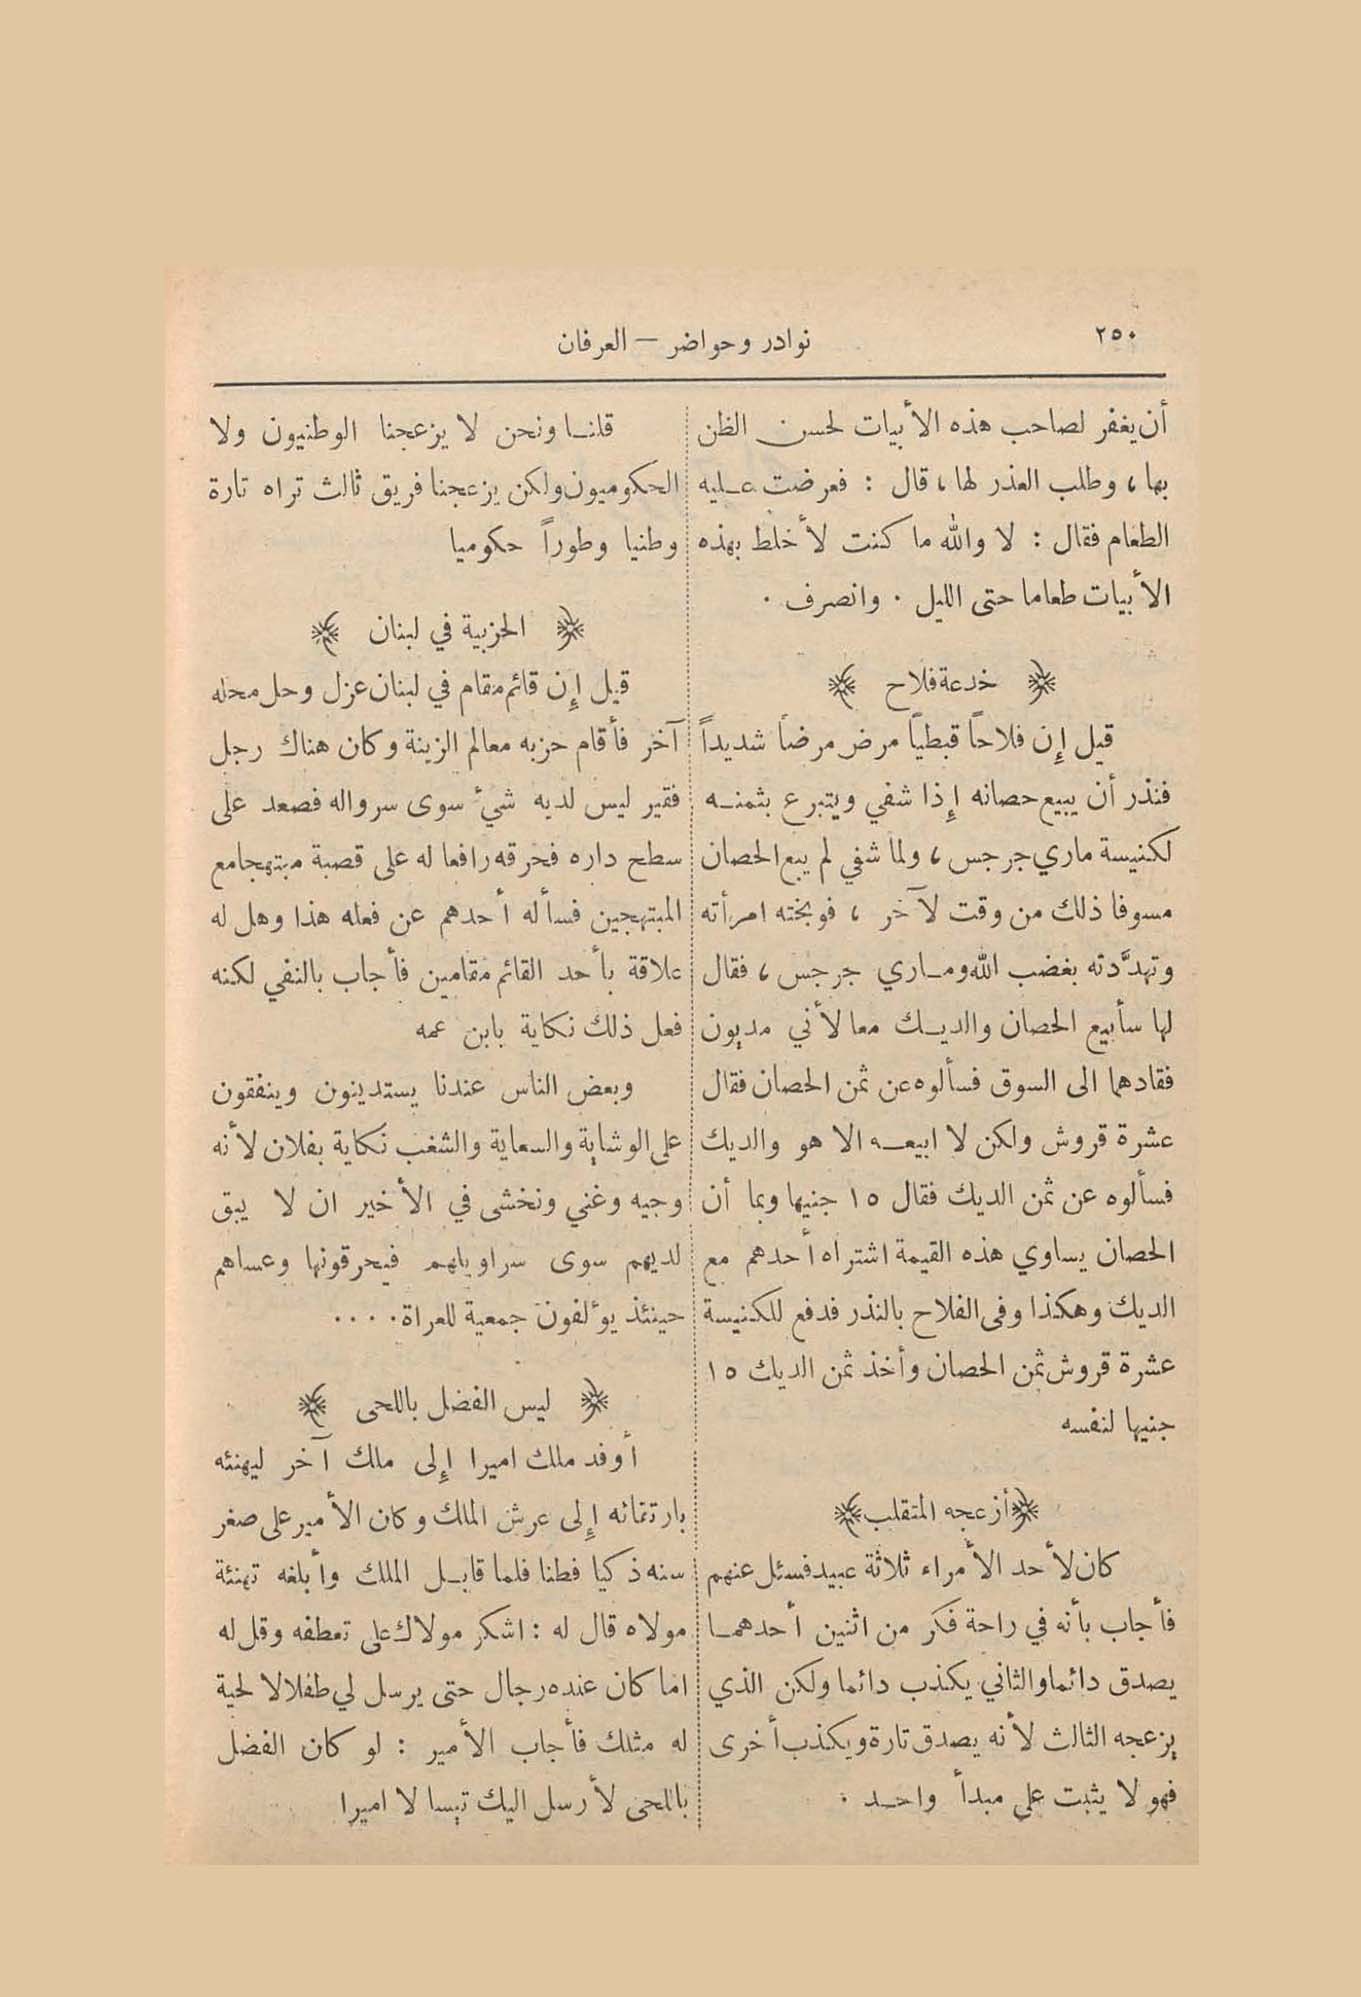 ٢٥٠
نوادر وحواضر — العرفان
أن يغفر لصاحب هذه الأبيات لحسن الظن
بها ، وطلب العذر لها ، قال : فعرضت عليه
الطعام فقال : لا والله ما كنت لأخلط بهذه
الأبيات طعاما حتى الليل . وانصرف .
﴿ خدعة فلاح ﴾
قيل إن فلاحاً قبطياً مرض مرضاً شديداً
فنذر أن يبيع حصانه إذا شفي ويتبرع بثمنه
لكنيسة ماري جرجس ، ولما شفي لم يبع الحصان
مسوفا ذلك من وقت لآخر ، فوبخته امرأته
وتهدَّدته بغضب الله وماري جرجس ، فقال
لها سأبيع الحصان والديك معا لأني مديون
فقادهما الى السوق فسألوه عن ثمن الحصان فقال
عشرة قروش ولكن لا ابيعه الا هو والديك
فسألوه عن ثمن الديك فقال ١٥ جنيها وبما أن
الحصان يساوي هذه القيمة اشتراه أحدهم مع
الديك وهكذا وفى الفلاح بالنذر فدفع للكنيسة
عشرة قروش ثمن الحصان وأخذ ثمن الديك ١٥
جنيها لنفسه
﴿ أزعجه المتقلب ﴾
كان لأحد الأمراء ثلاثة عبيد فسئل عنهم
فأجاب بأنه في راحة فكر من اثنين أحدهما
يصدق دائما والثاني يكذب دائما ولكن الذي
يزعجه الثالث لأنه يصدق تارة ويكذب أخرى
فهو لا يثبت على مبدأ واحد .
قلنا ونحن لا يزعجنا الوطنيون ولا
الحكوميون ولكن يزعجنا فريق ثالث تراه تارة
وطنيا وطوراً حكوميا
﴿ الحزبية في لبنان ﴾
قيل إن قائم مقام في لبنان عزل وحل محله
آخر فأقام حزبه معالم الزينة وكان هناك رجل
فقير ليس لديه شيء سوى سرواله فصعد على
سطح داره فحرقه رافعا له على قصبة مبتهجا مع
المبتهجين فسأله أحدهم عن فعله هذا وهل له
علاقة بأحد القائم مقامين فأجاب بالنفي لكنه
فعل ذلك نكاية بابن عمه
وبعض الناس عندنا يستدينون وينفقون
على الوشاية والسعاية والشغب نكاية بفلان لأنه
وجيه وغني ونخشى في الأخير ان لا يبق
لديهم سوى سراويلهم فيحرقونها وعساهم
حينئذ يؤلفون جمعية للعراة . . . .
﴿ ليس الفضل باللحى ﴾
أوفد ملك اميرا إلى ملك آخر ليهنئه
بارتقائه إلى عرش الملك وكان الأمير على صغر
سنه ذكيا فطنا فلما قابل الملك وأبلغه تهنئة
مولاه قال له : اشكر مولاك على تعطفه وقل له
اما كان عنده رجال حتى يرسل لي طفلا لا لحية
له مثلك فأجاب الأمير : لو كان الفضل
باللحى لأرسل اليك تيسا لا اميرا